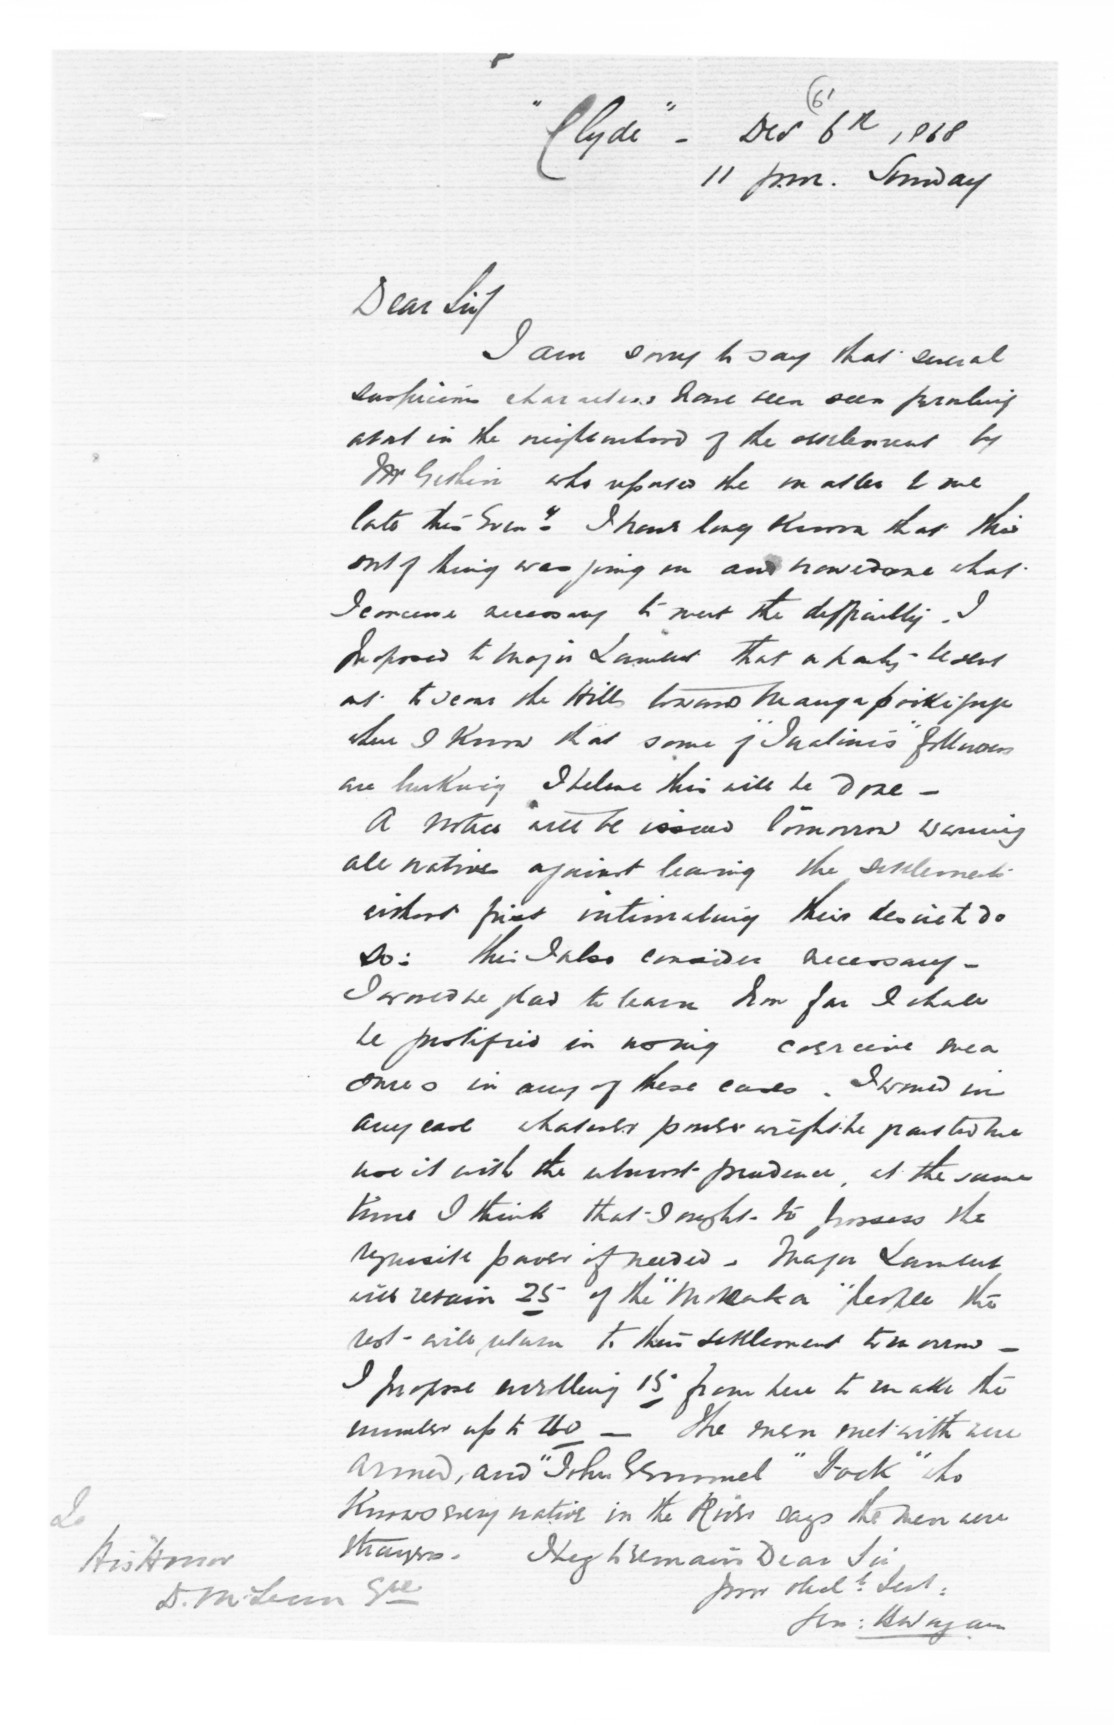 6
"Clyde" - Dec 6th, 1868
11 p.m. Sunday
Dear Sir/
I am sorry to say that several
suspicious characters have been seen prowling
about in the neighbourhood of the settlement by
Mr who reported the matter to me
late this Eveng. I have long known that this
sort of thing was going on and have done what
I conceive necessary to meet the difficulty. I
proposed to Major Lambert that a party be sent
out to scour the Hills towards Maungapoikepoike
where I know that some of followers
are lurking I believe this will be done -
A notice will be issued tomorrow warning
all natives against leaving the settlements
without first intimating their desire to do
so: this I also consider necessary -
I would be glad to learn how far I shall
be justified in using coercive mea
sures in any of these cases. I would in
any case whatever power might be granted me
use it with the utmost prudence, at the same
time I think that I ought to possess the
requisite power if needed - Major Lambert
will retain 25 of the "Mohaka" people the
rest will return to their settlement tomorrow -
I propose enrolling 15 from here to make the
number up to 40 - The men met with were
armed, and "John" "Jack" who
knows every native in the River says the men were
strangers. I beg to remain Dear Sir
your obedt. Sert:
To
His Honor
D. McLean Esqre